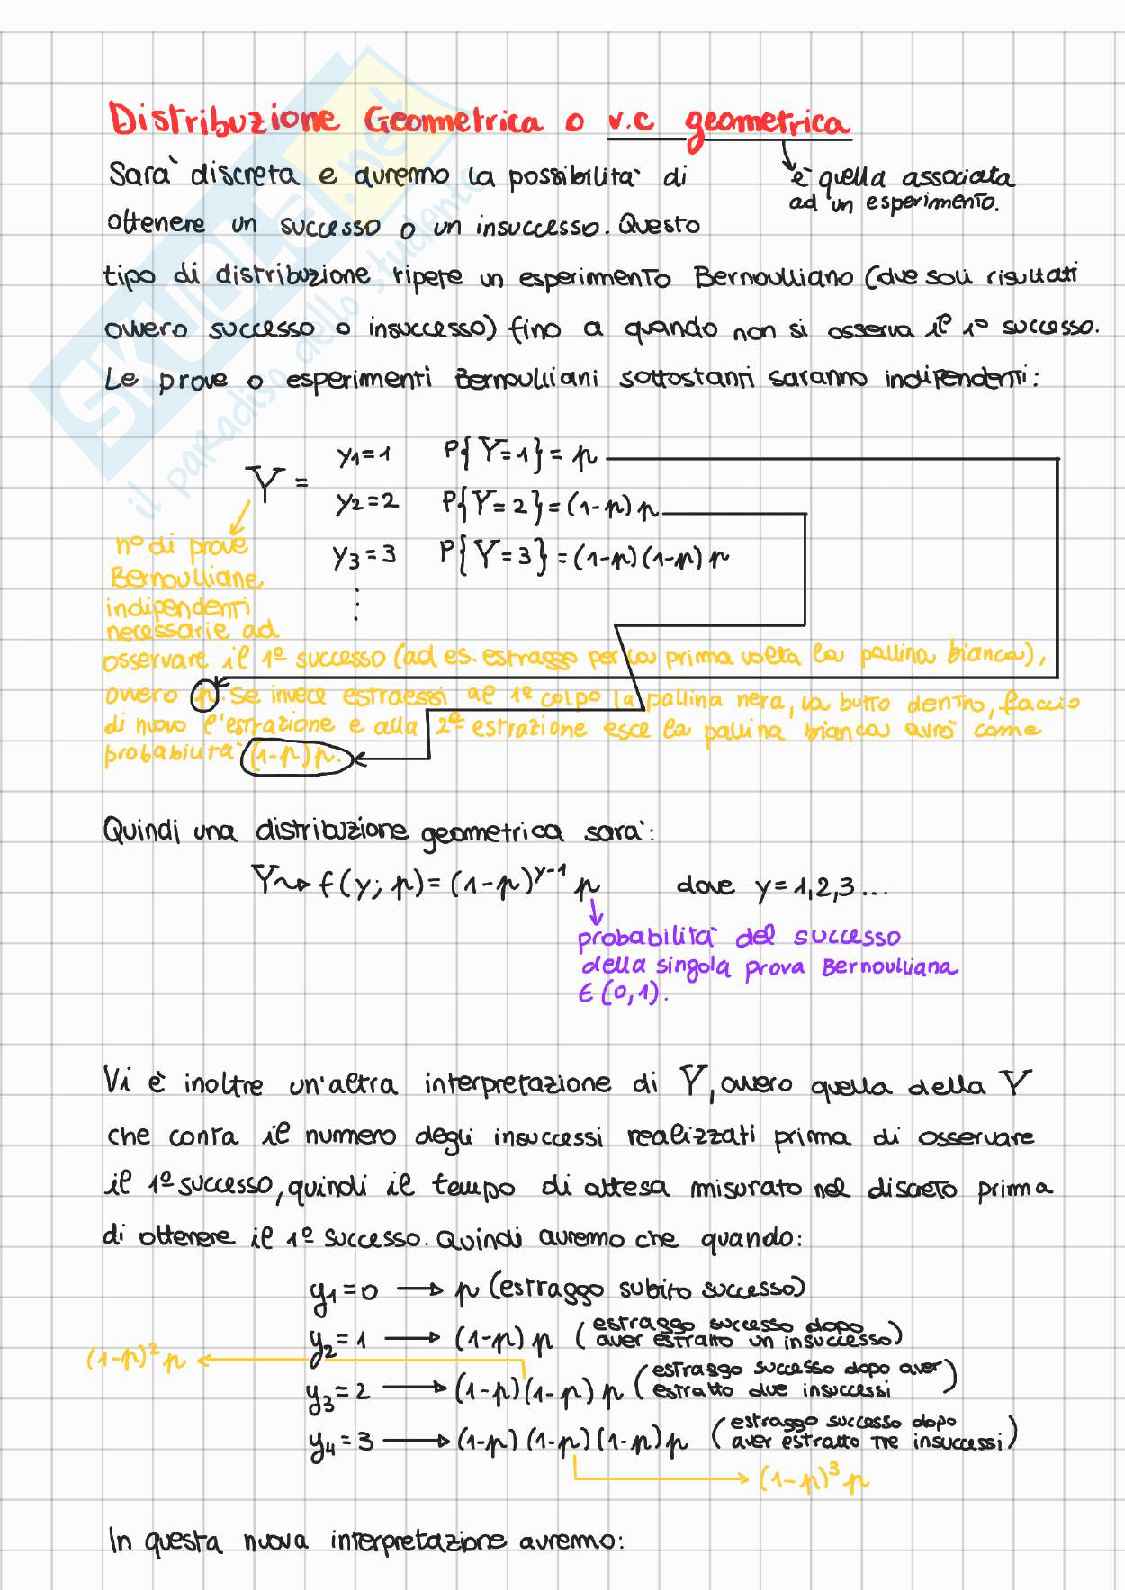 Distribuzione Geometrica o v.c geometrica
Sarà discreta e avremo la possibilità di
è quella associata
ad un esperimento.
ottenere un successo o un insuccesso. Questo
tipo di distribuzione ripete un esperimento Bernoulliano (due soli risultati
ovvero successo o insuccesso) fino a quando non si osserva il 1º successo.
Le prove o esperimenti Bernoulliani sottostanti saranno indipendenti:
Y =
y1=1 P{Y=1}= p
y2=2 P{Y=2}=(1-p)p
y3=3 P{Y=3}=(1-p)(1-p)p
⋮
nº di prove
Bernoulliane
indipendenti
necessarie ad
osservare il 1º successo (ad es. estraggo per la prima volta la pallina bianca),
ovvero p. Se invece estraessi al 1º colpo la pallina nera, la butto dentro, faccio
di nuovo l'estrazione e alla 2ª estrazione esce la pallina bianca avrò come
probabilità (1-p)p.
Quindi una distribuzione geometrica sarà:
Y⤳ f(y; p)=(1-p)^{y-1} p dove y=1,2,3...
probabilità del successo
della singola prova Bernoulliana
∈(0,1).
Vi è inoltre un'altra interpretazione di Y, ovvero quella della Y
che conta il numero degli insuccessi realizzati prima di osservare
il 1º successo, quindi il tempo di attesa misurato nel discreto prima
di ottenere il 1º successo. Quindi avremo che quando:
y1=0 → p (estraggo subito successo)
y2=1 → (1-p)p (estraggo successo dopo
aver estratto un insuccesso)
(1-p)² p
y3=2 → (1-p)(1-p)p (estraggo successo dopo aver
estratto due insuccessi)
y4=3 → (1-p)(1-p)(1-p)p (estraggo successo dopo
aver estratto tre insuccessi)
(1-p)³ p
In questa nuova interpretazione avremo:
SKUOLA.net
il paradiso dello studente